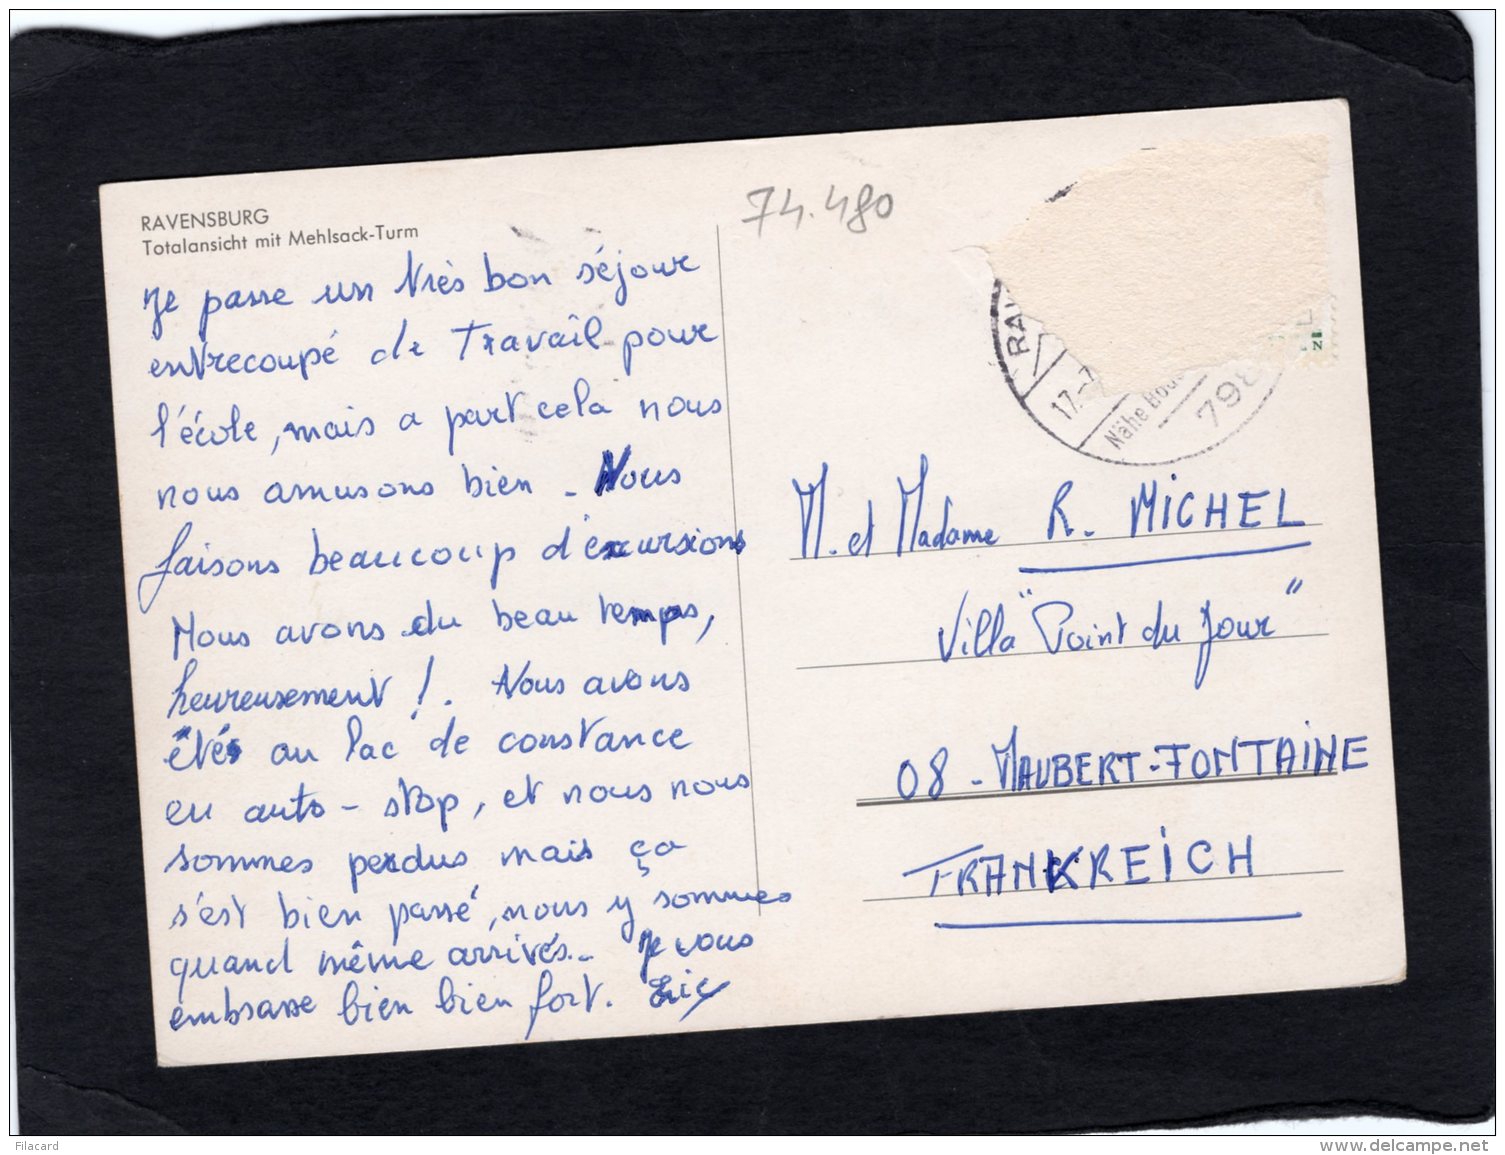 RAVENSBURG
Totalansicht mit Mehlsack-Turm
Je passe un très bon séjour
entrecoupé de Travail pour
l'école, mais a part cela nous
nous amusons bien - Nous
faisons beaucoup d'excursions
Nous avons du beau temps,
heureusement !. Nous avons
étés au lac de constance
en auto-stop, et nous nous
sommes perdus mais ça
s'est bien passé, nous y sommes
quand même arrivés.- Je vous
embrasse bien bien fort. Eric
74.480
RAV
17.-7
Nähe Bod
798
M. et Madame R. MICHEL
Villa "Point du Jour"
08 - MAUBERT-FONTAINE
FRANKREICH
Filacard
www.delcampe.net